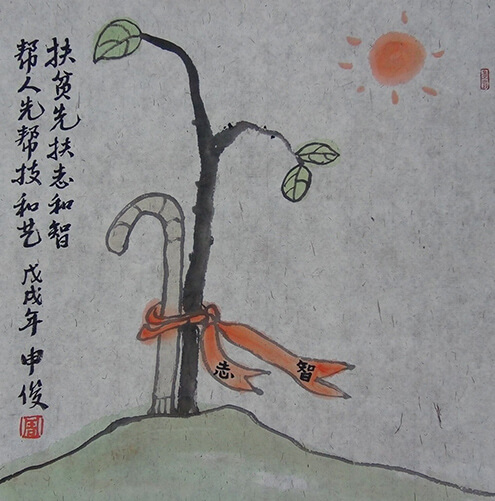 扶贫先扶志和智
帮人先帮技和艺
戊戌年 申俊
志
智